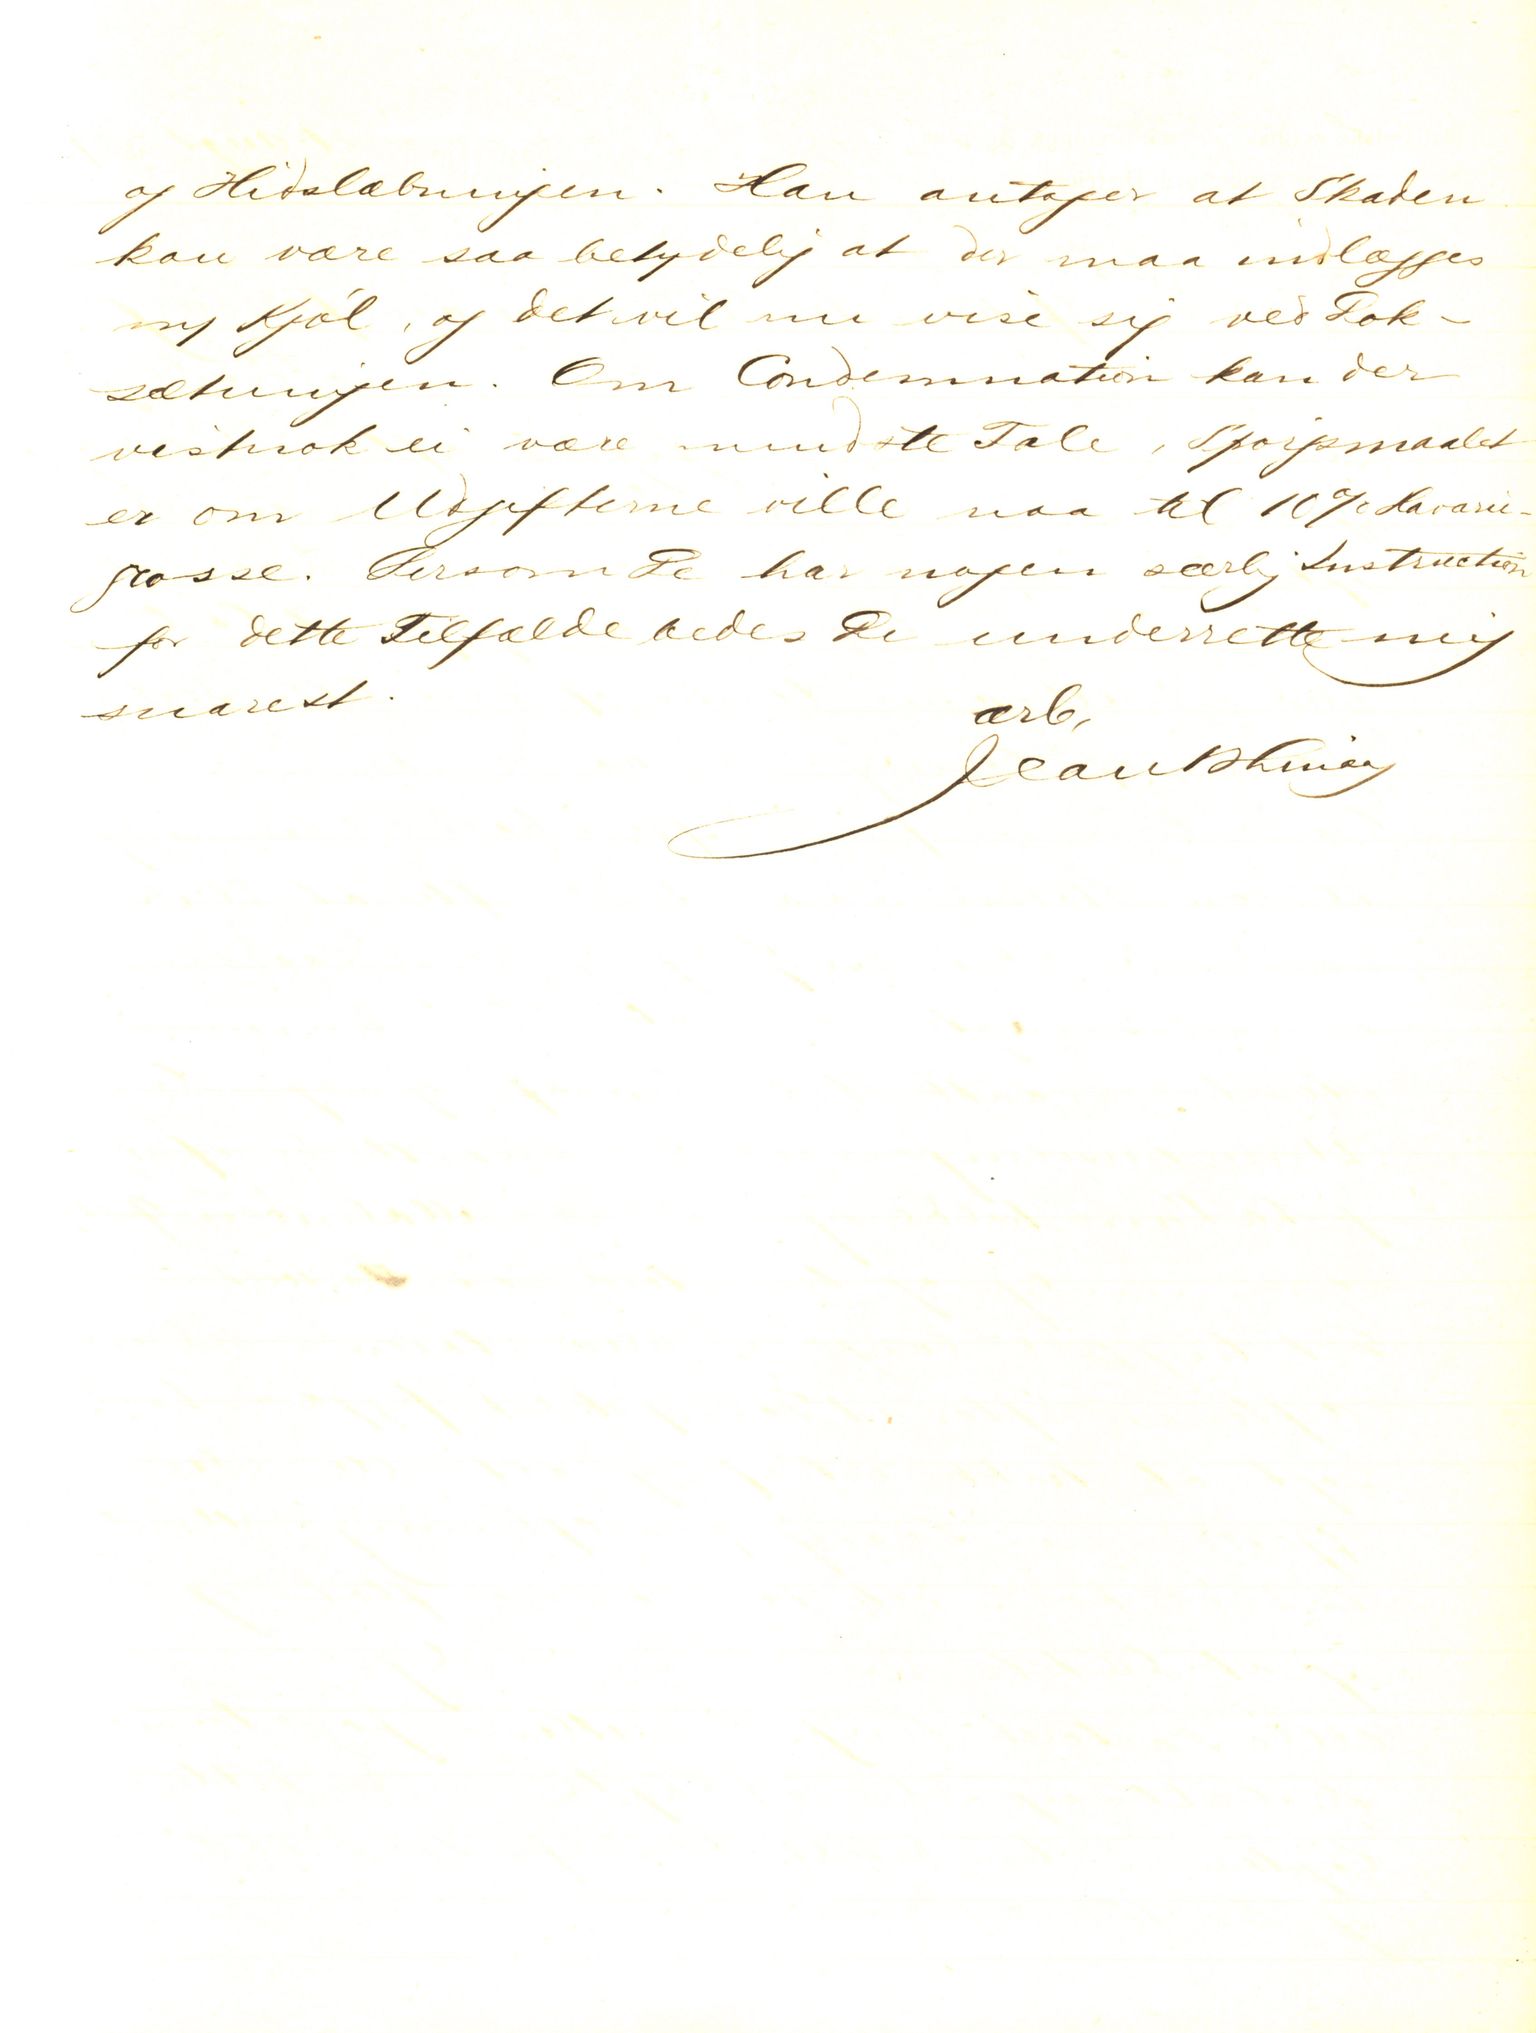 og Hidslæbningen. Han antager at Skaden
kan være saa betydelig at der maa indlægges
ny Kjøl, og det vil nu vise sig ved Dok-
sætningen. Om Condemnation kan der
vistnok ei være mindste Tale, Spørgsmaalet
er om Udgifterne ville naa til 10% Havari-
grosse. Dersom De har nogen særlig Instruction
for dette Tilfælde bedes De underrette mig
snarest.
ærb,
Jean